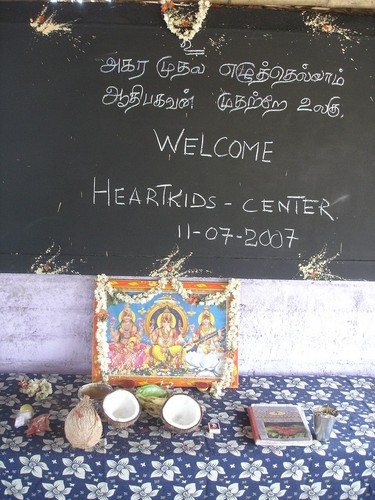 உ
அகர முதல எழுத்தெல்லாம்
ஆதிபகவன் முதற்றே உலகு.
WELCOME
HEARTKIDS - CENTER
11-07-2007